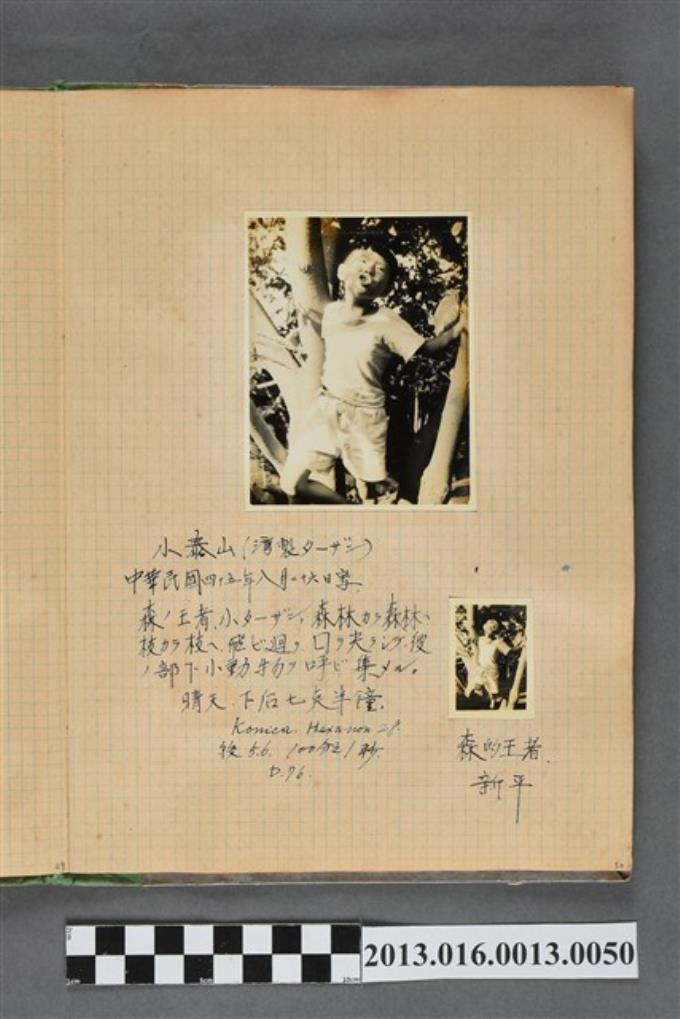 小泰山(湾製ターザン)
中華民國四十五年八月二十六日寫
森ノ王者、小ターザン、森林カラ森林ヘ
枝カラ枝ヘ、飛ビ廻リ、口ヲ尖ラシテ、彼
ノ部下小動物ヲ呼ビ集メル。
晴天、下后七点半撞。
Konica. Hexanon 2.8.
絞 5.6. 100分之1秒.
D.76.
森的王者.
新平
49
50
1cm
5cm
10cm
2013.016.0013.0050